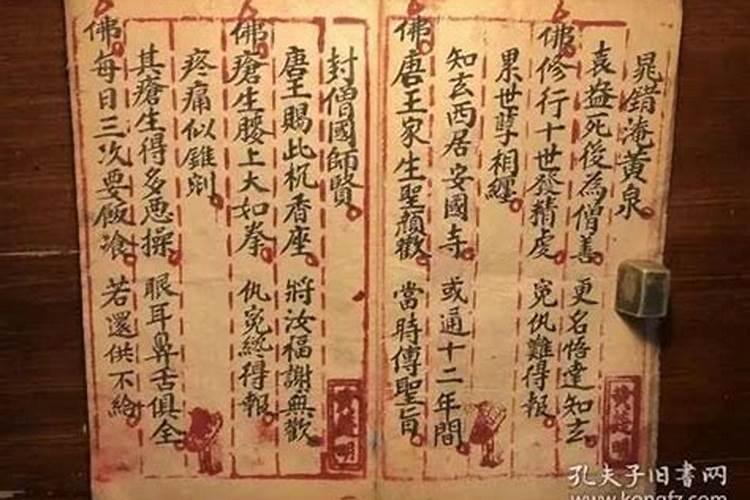 晁錯淹黃泉
袁盎死後為僧善 更名悟達知玄
佛修行十世發精虔 冤仇難得報
累世孽相纏
知玄西居安國寺 或通十二年間
佛唐王家生聖顏歡 當時傳聖旨
封僧國師賢
唐王賜此杋香座 將汝福謝無歡
佛瘡生腰上大如拳 仇冤終得報
疼痛似錐剜
其瘡生得多惡操 眼耳鼻舌俱全
佛每日三次要飯飡 若還供不給
孔夫子旧书网
www.kongfz.com